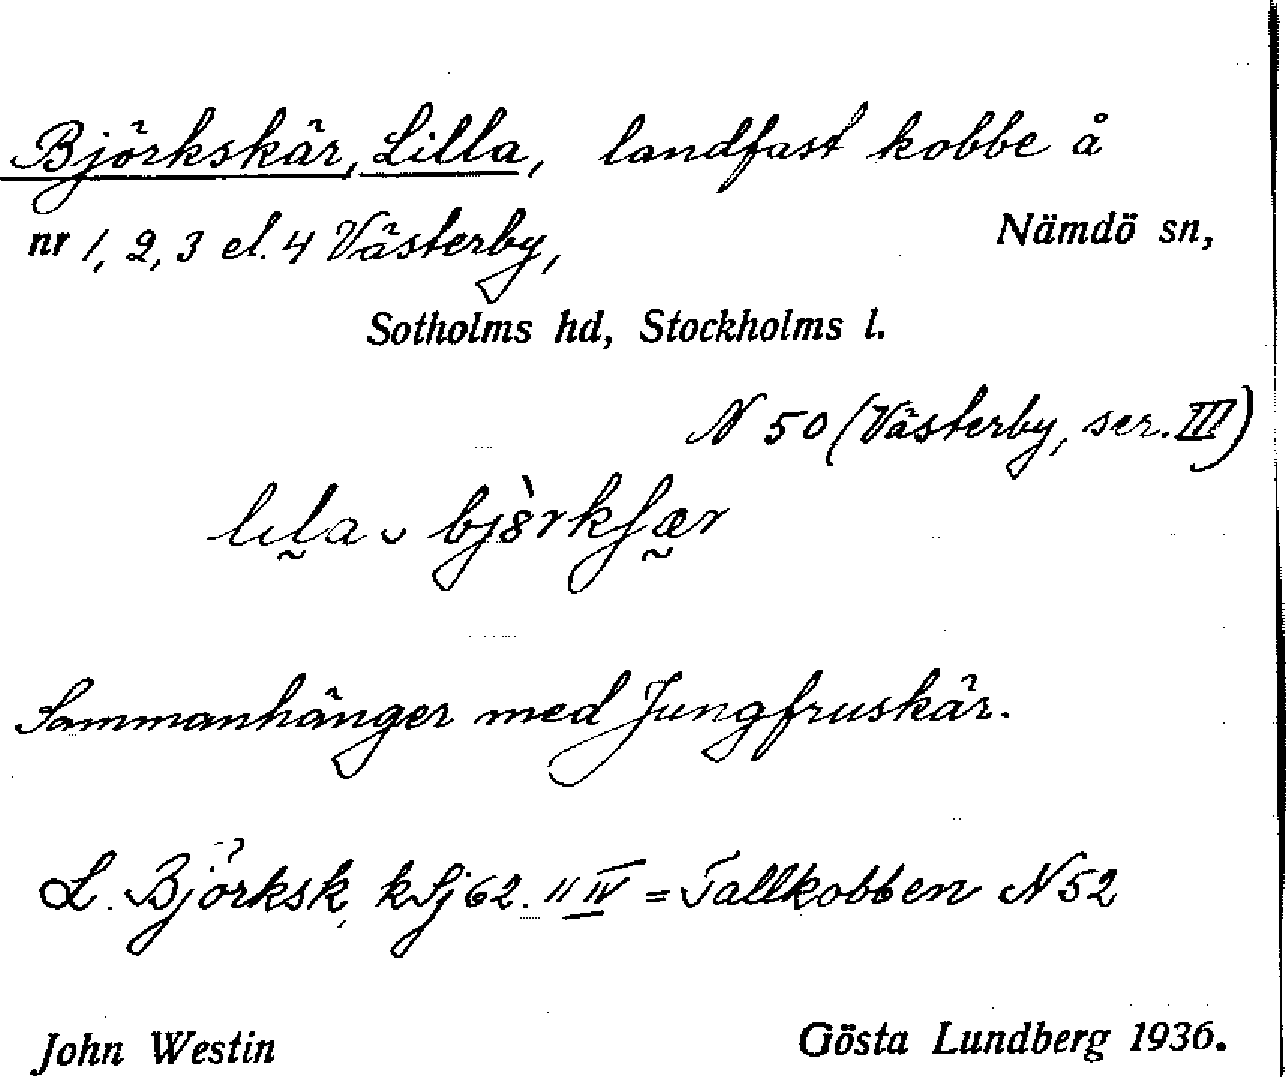 Björkskär, Lilla, landfast kobbe å
nr 1, 2, 3 el. 4 Västerby, Nämdö sn,
Sotholms hd, Stockholms l.
N 50 (Västerby, ser. III)
Sammanhänger med Jungfruskär.
L. Björksk kSj 62. II IV = Tallkobben N 52
John Westin Gösta Lundberg 1936.